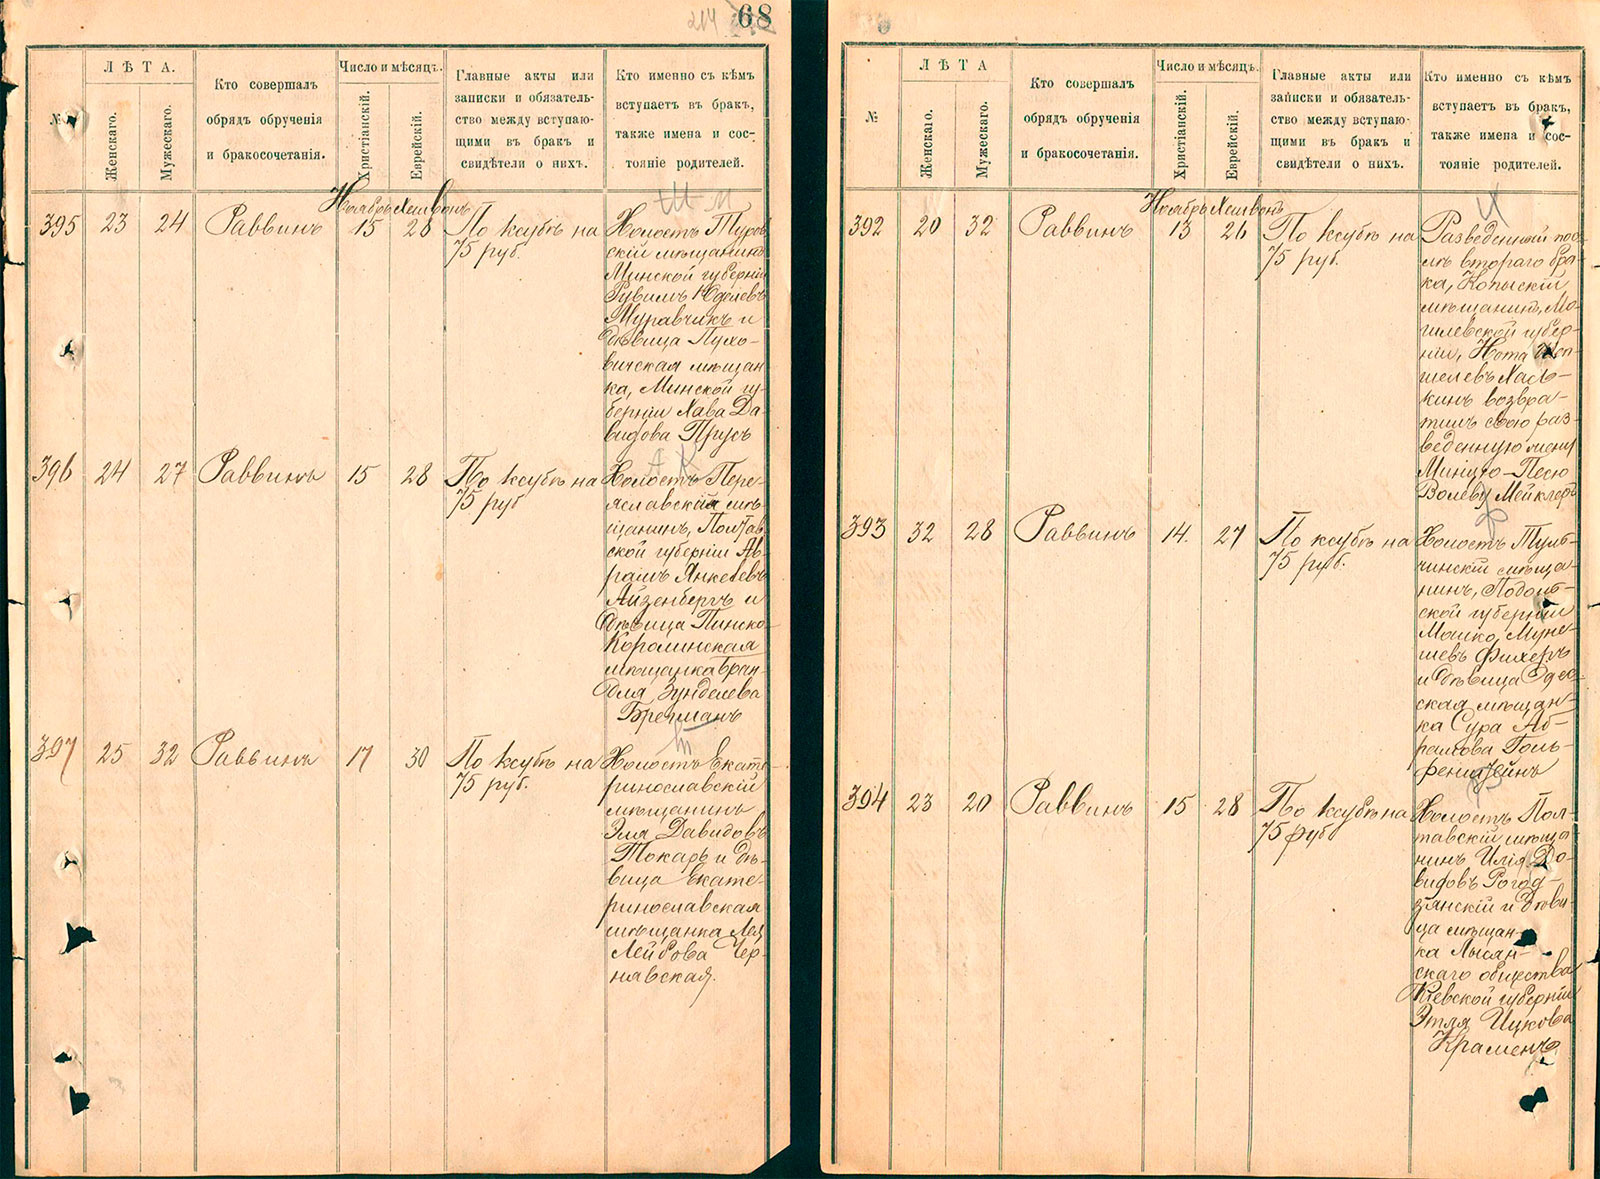 68
214
№
ЛѢТА.
Женскаго.
Мужескаго.
Кто совершалъ
обрядъ обрученія
и бракосочетанія.
Число и мѣсяцъ.
Христіанскій.
Еврейскій.
Главные акты или
записки и обязатель-
ство между вступаю-
щими въ бракъ и
свидѣтели о нихъ.
Кто именно съ кѣмъ
вступаетъ въ бракъ,
также имена и сос-
тояніе родителей.
Ноябрь Хешвонъ
395 23 24 Раввинъ 15 28 По ксубѣ на
75 руб.
Холостъ Туров
скій мѣщанинъ
Минской губерніи
Рувимъ
Муравчикъ и
дѣвица Пухо-
вичская мѣщан
ка, Минской гу-
берніи Хава Да-
видова Прусъ
396 24 27 Раввинъ 15 28 По ксубѣ на
75 руб
Холостъ Пере-
яславскій мѣ-
щанинъ, Полтав
ской губерніи Ав-
рамъ Янкелевъ
Айзенбергъ и
дѣвица Пинско
Королинская
мѣщанка Бран-
для Зунделева
Брегманъ
397 25 32 Раввинъ 17 30 По ксубѣ на
75 руб.
Холостъ Екате
ринославскій
мѣщанинъ
Эля Давидовъ
Токарь и дѣ-
вица Екате-
ринославская
мѣщанка Лея
Лейбова Чер-
нявская.
№
ЛѢТА
Женскаго.
Мужескаго.
Кто совершалъ
обрядъ обрученія
и бракосочетанія.
Число и мѣсяцъ.
Христіанскій.
Еврейскій.
Главные акты или
записки и обязатель-
ство между вступаю-
щими въ бракъ и
свидѣтели о нихъ.
Кто именно съ кѣмъ
вступаетъ въ бракъ,
также имена и сос-
тояніе родителей.
Ноябрь Хешвонъ
392 20 32 Раввинъ 13 26 По ксубѣ на
75 руб.
Разведенный пос-
лѣ втораго бра-
ка, Копыскій
мѣщанинъ, Мо-
гилевской губер-
ніи, Нота
шелевъ Хась-
кинъ возвра-
тилъ свою раз-
веденную жену
Минцю-Песю
Волеву Мейклеръ
393 32 28 Раввинъ 14. 27 По ксубѣ на
75 руб.
Холостъ Туль-
чинскій мѣща-
нинъ, Подоль-
ской губерніи
Мошко Муне-
шевъ Фихеръ
и дѣвица Одес-
ская мѣщан-
ка Сура Аб-
рамова Голь-
денштейнъ
394 23 20 Раввинъ 15 28 По ксубѣ на
75 руб
Холостъ Пол-
тавскій мѣща
нинъ Илія До-
видовъ Рогод-
зянскій и дѣви-
ца мѣщан-
ка Лысян-
скаго общества
Кіевской губерніи
Этля Ицкова
Краменъ